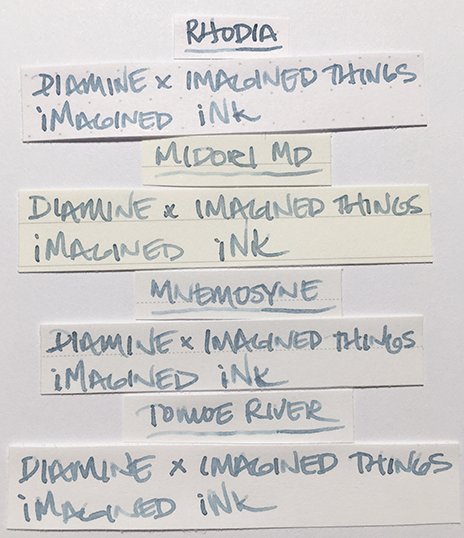 RHODIA
DIAMINE x IMAGINED THINGS
iMAGINED iNK
MIDORI MD
DIAMINE x IMAGINED THINGS
iMAGINED iNK
MNEMOSYNE
DIAMINE x IMAGINED THINGS
iMAGINED iNK
TOMOE RIVER
DIAMINE x IMAGINED THINGS
iMAGINED iNK